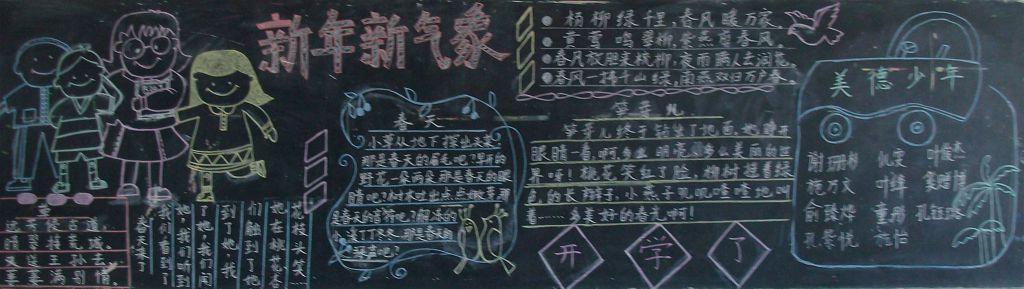 新年新气象
杨柳绿千里，春风暖万家。
黄莺鸣翠柳，紫燕剪春风。
春风放胆来梳柳，夜雨瞒人去润花。
春风一拂千山绿，南燕双归万户春。
美德少年
叶俊杰
施万义
叶绎
俞陵烨
春天
小草从地下探出头来，
那是春天的眉毛吧？早开的
野花一朵两朵，那是春天的眼
睛吧？树木吐出点点嫩芽，那
是春天的音符吧？解冻的
小溪丁丁冬冬，那是春天的
琴声吧？
笋芽儿
笋芽儿终于钻出了地面。她睁开
眼睛一看，啊，多么明亮、多么美丽的世
界呀！桃花笑红了脸，柳树摇着绿
色的长辫子，小燕子叽叽喳喳地叫
着……多美好的春光啊！
远芳侵古道，
晴翠接荒城。
又送王孙去，
萋萋满别情。
春天来了
我们看到了
她，我们听到
了她，我们闻
到了她，我
们触到了她。
她在桃花杏
花枝头笑……
开学了